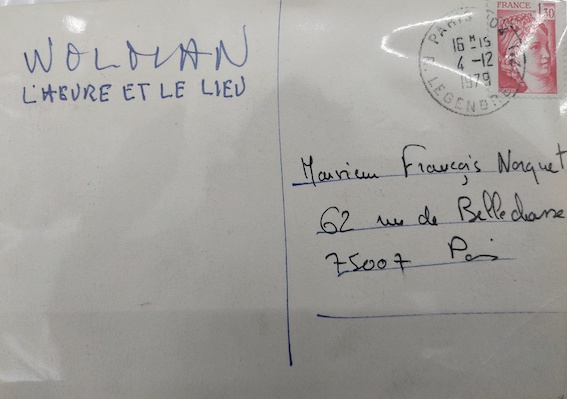 WOLMAN
L'HEURE ET LE LIEU
FRANCE 1,30
PARIS
16H15
4-12
1979
R. LEGENDRE
Monsieur François Norguet
62 rue de Bellechasse
75007 Paris